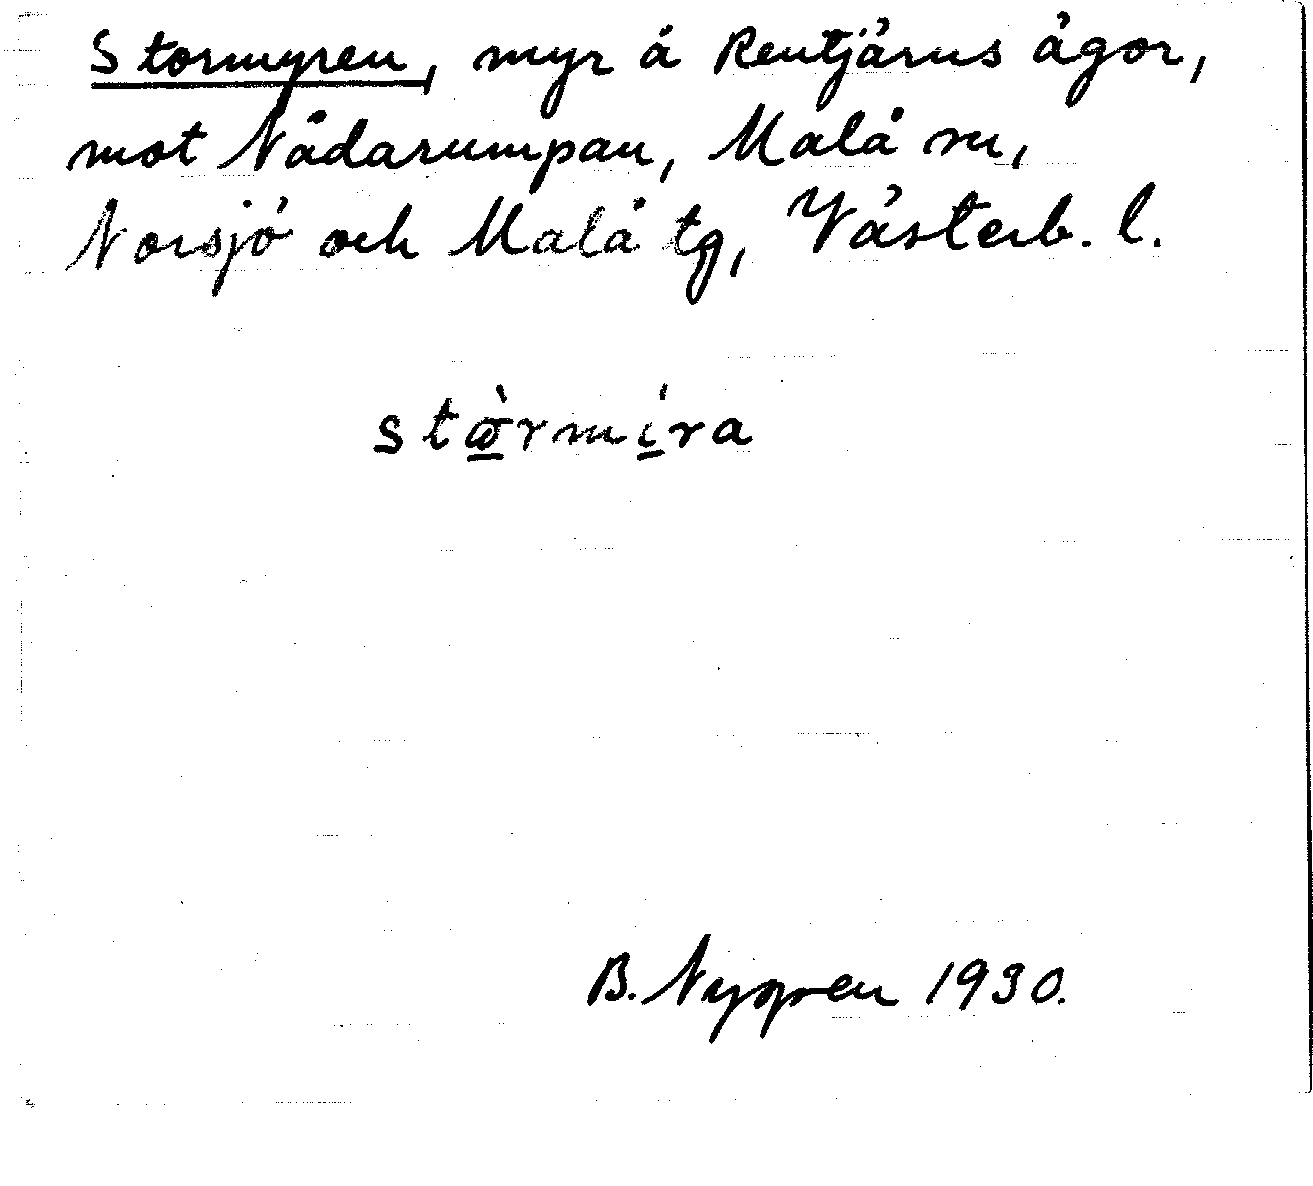 Stormyren, myr å Rentjärns ägor,
mot Nådarumpan, Malå sn,
Norsjö och Malå tg, Västerb. l.
stὼ̲rmí̲ra
B. Nygren 1930.